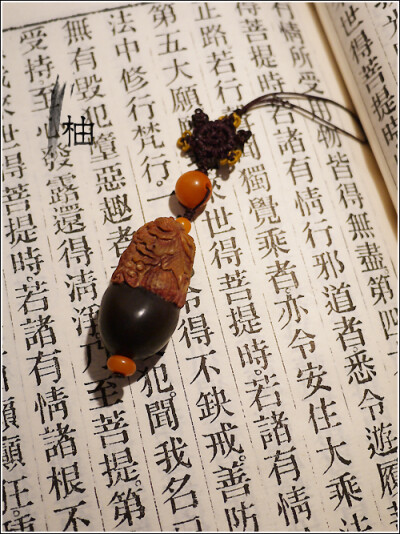 世得菩提
有情所受用物皆得無盡第四
得菩提時若諸有情行邪道者悉令遊履
止路若行
聞獨覺乘者亦令安住大乘法
第五大願
來世得菩提時若諸有情
法中修行梵行一
令得不缺戒善防
無有毀犯墮惡趣者
犯聞我名
受持至心發露還得清淨乃至菩提第
世得菩提時若諸有情諸根不
頑
狂
柚